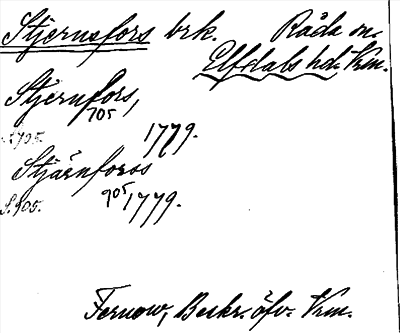 Stjernsfors brk. Råda sn.
Elfdals hd. Vrm.
Stjernfors,
705
S. 705. 1779.
Stjärnforss
905
S. 905. 1779.
Fernow, Beskr. öfv. Vrm.